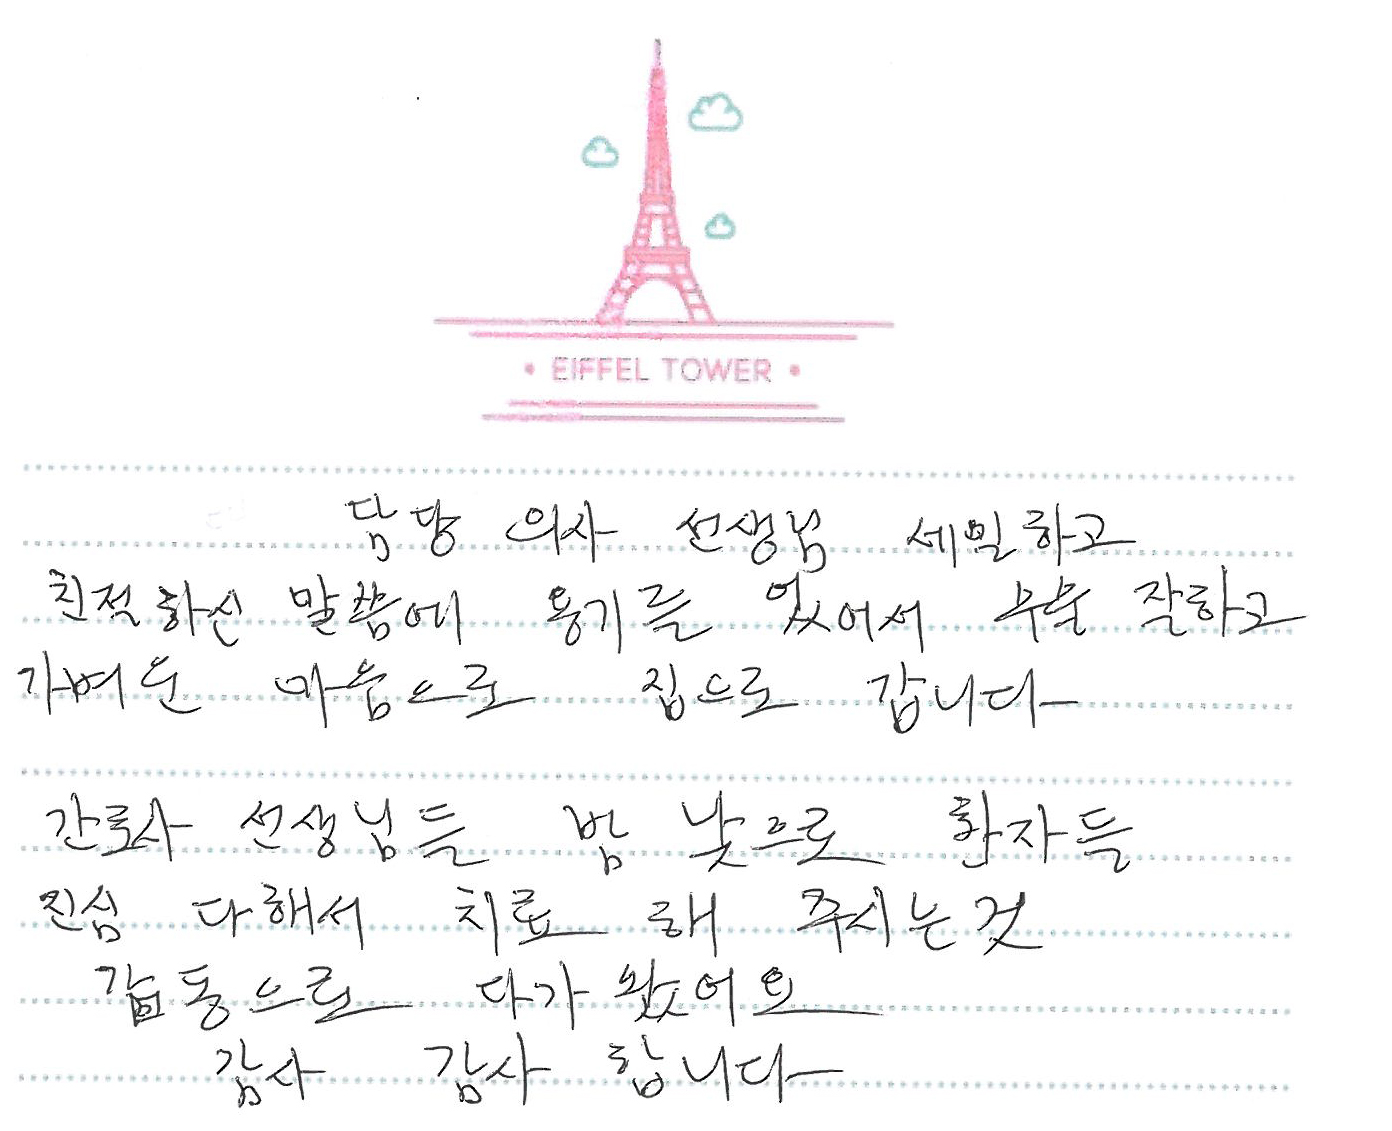 • EIFFEL TOWER •
담당 의사 선생님 세밀하고
친절하신 말씀에 용기를 얻어서 수술 잘하고
가벼운 마음으로 집으로 갑니다
간호사 선생님들 밤 낮으로 환자들
진심 다해서 치료 해 주시는것
감동으로 다가 왔어요
감사 감사 합니다